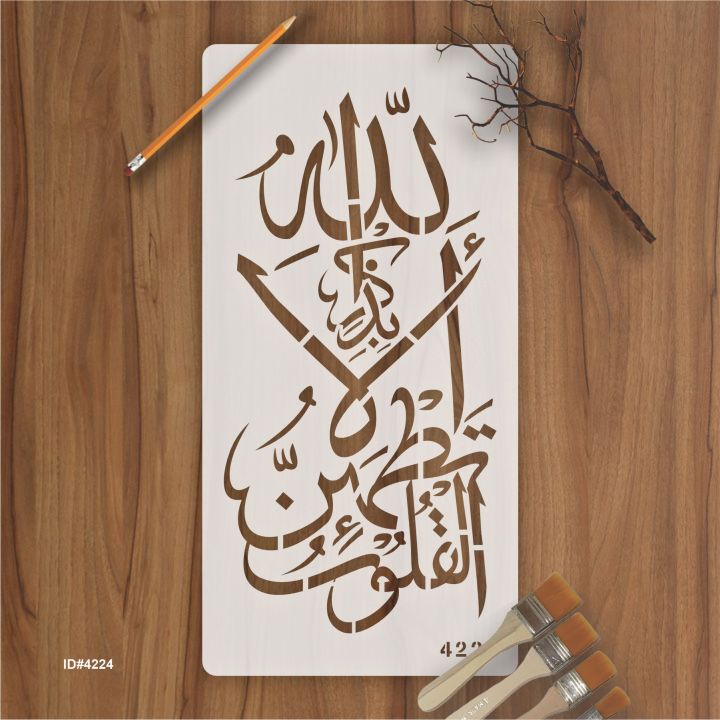 ألا بذكر الله تطمئن القلوب
422
ID#4224